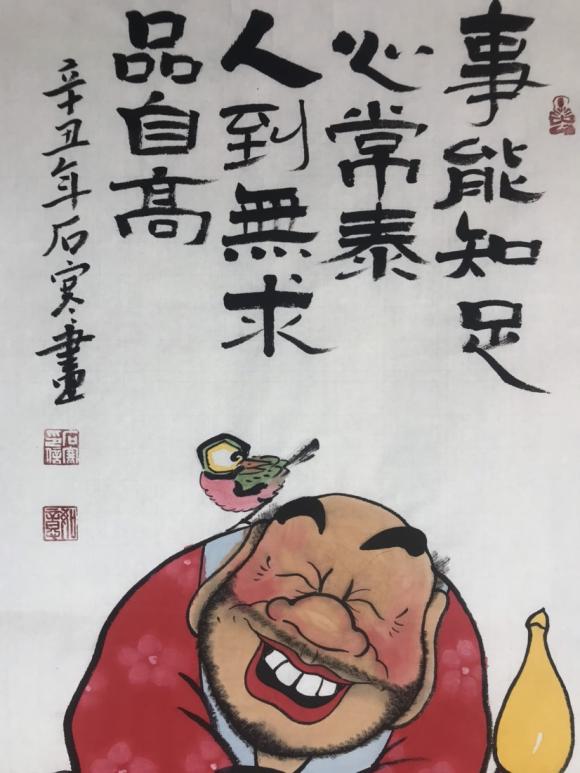 事能知足
心常泰
人到無求
品自高
辛丑年石寒畫